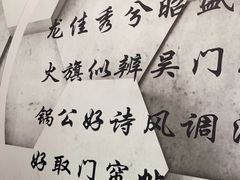 龙佳秀兮昭盛
火旗似辨吴门
锅公好诗风调
好取门帘